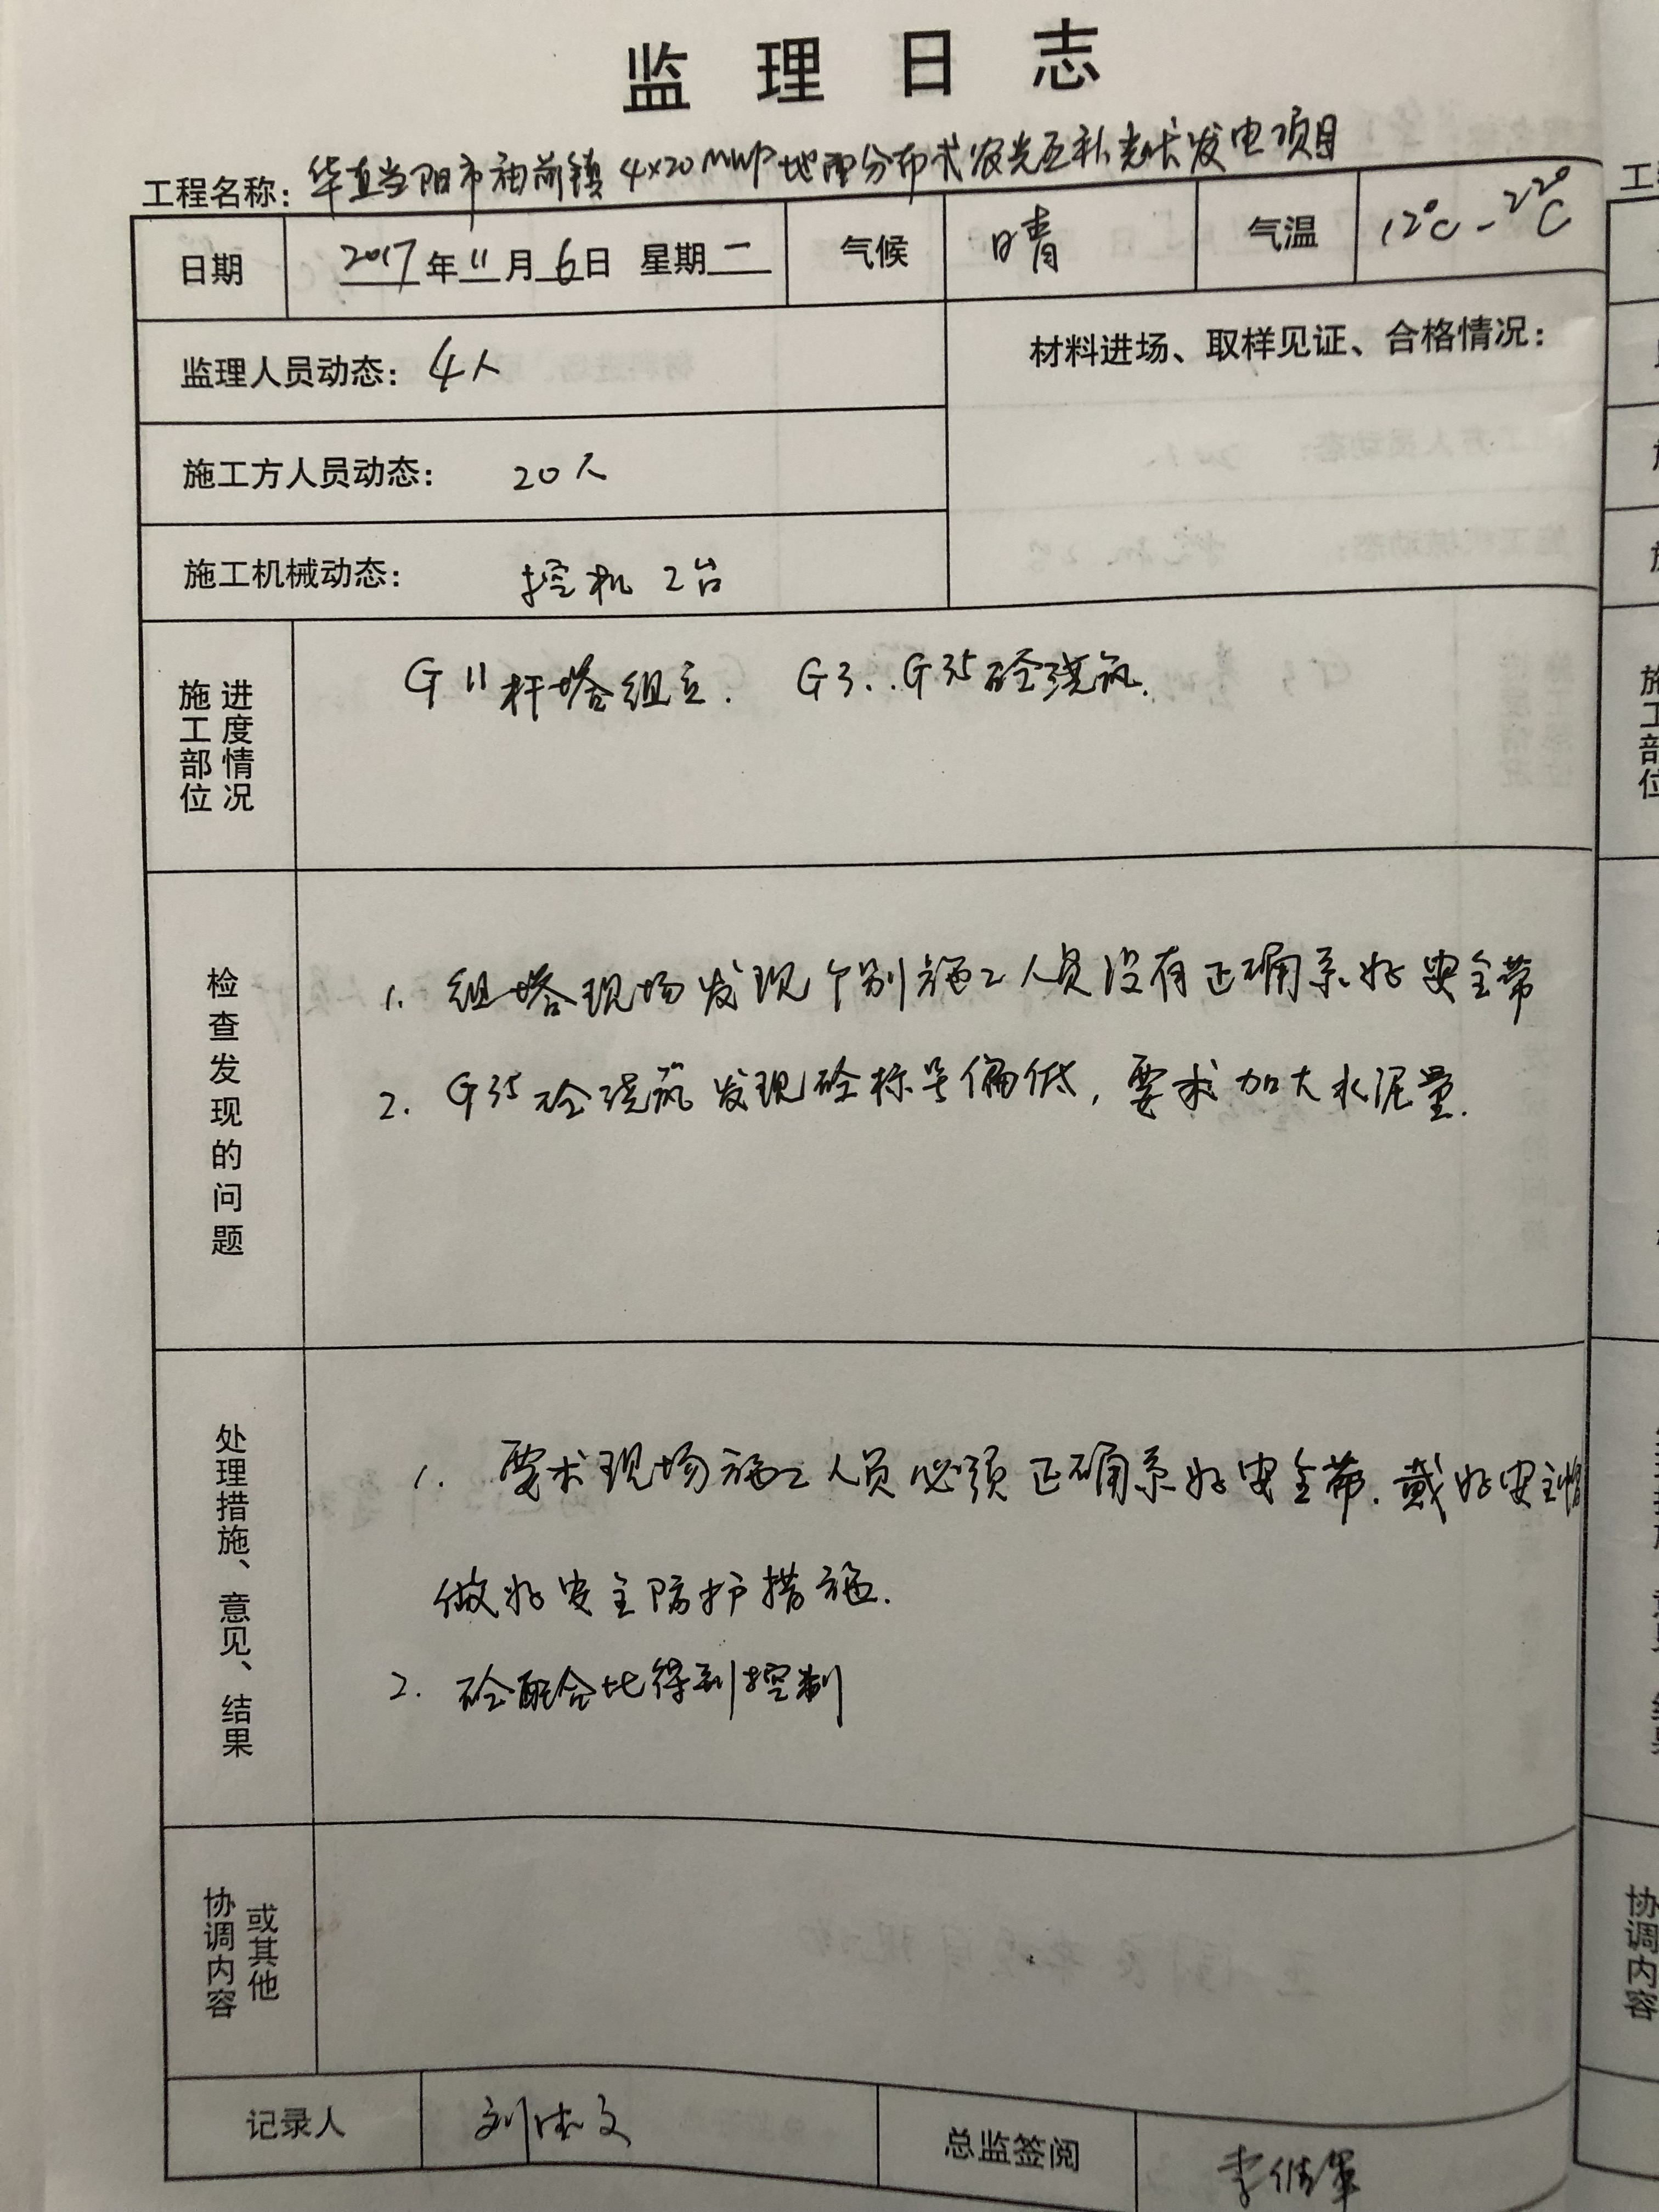 监理日志
工程名称: 华直当阳市袖前镇 4×20MWP 地面分布式农光互补光伏发电项目
日期 2017年11月6日 星期二 气候 晴 气温 12℃-22℃
监理人员动态: 4人 材料进场、取样见证、合格情况:
施工方人员动态: 20人
施工机械动态: 挖机 2台
施工部位进度情况 G11杆塔组立. G3..G35砼浇筑.
检查发现的问题
1. 组塔现场发现个别施工人员没有正确系好安全带
2. G35砼浇筑发现砼标号偏低, 要求加大水泥量.
处理措施、意见、结果
1. 要求现场施工人员必须正确系好安全带. 戴好安全帽
做好安全防护措施.
2. 砼配合比得到控制
协调内容或其他
记录人 刘 文 总监签阅 李 军